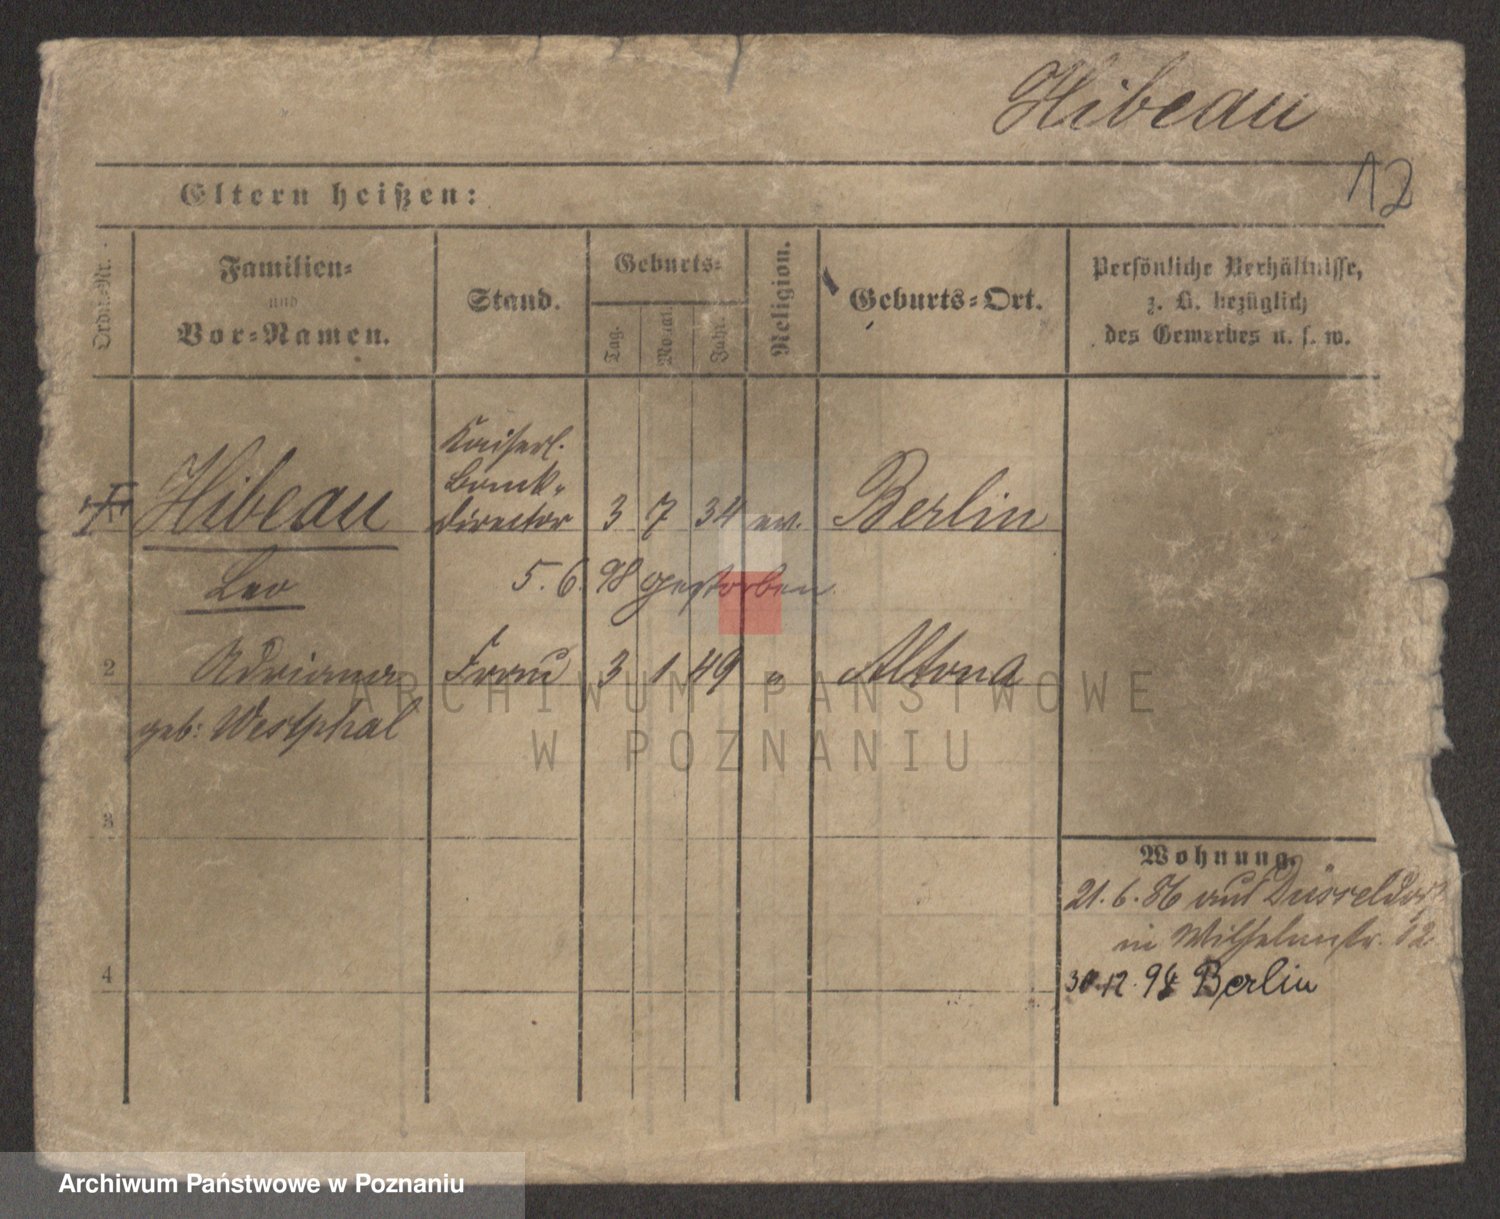 Hibeau
12
Eltern heißen:
Ordn.-Nr.
Familien-
und
Vor-Namen.
Stand.
Geburts-
Tag.
Monat.
Jahr.
Religion.
Geburts-Ort.
Persönliche Verhältnisse,
z. B. bezüglich
des Gewerbes u. s. w.
Kaiserl.
Bank-
Hibeau director 3 7 34 ev. Berlin
Leo 5. 6. 98 gestorben
2 Adriana Frau 3 1 49 " Altona
geb: Westphal
3
4
Wohnung.
21. 6. 86 aus Düsseldorf
in Wilhelmstr. 12
30.12. 94 Berlin
ARCHIWUM PAŃSTWOWE
W POZNANIU
Archiwum Państwowe w Poznaniu